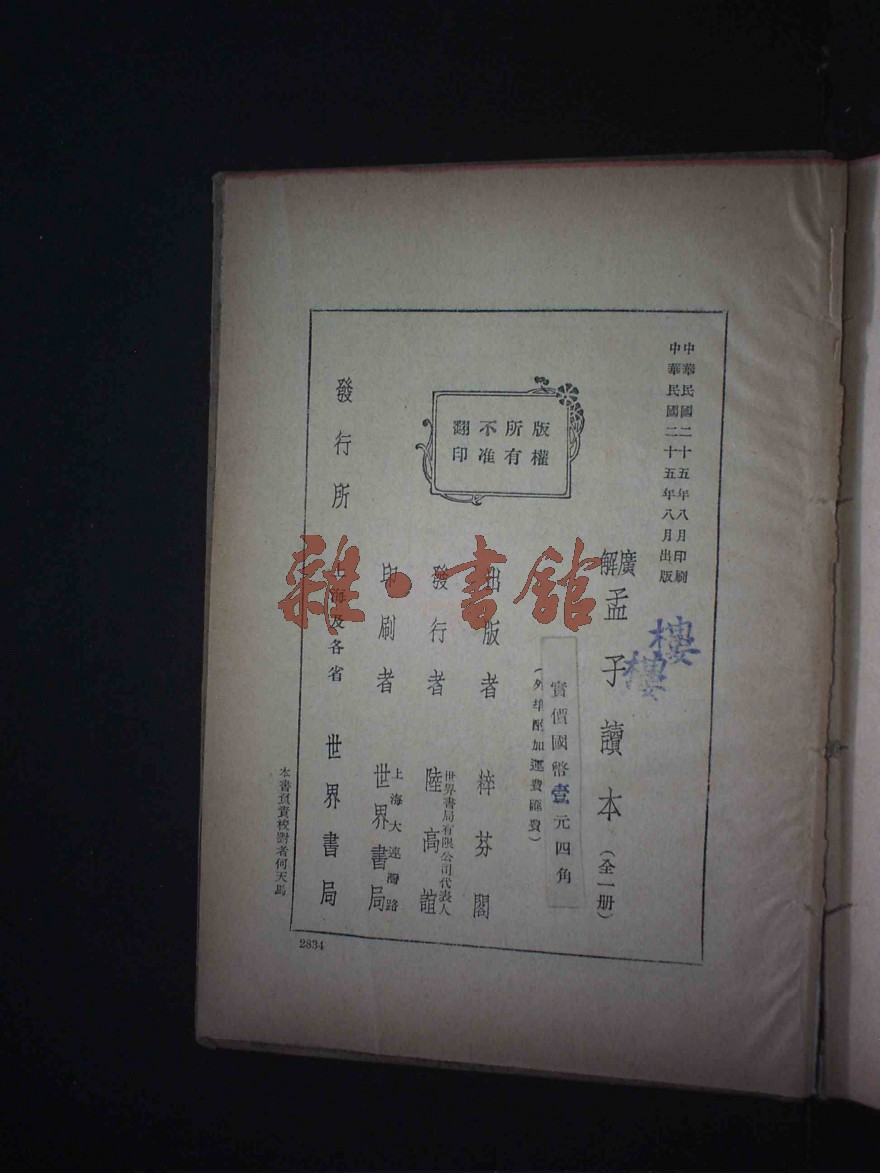 中華民國二十五年八月印刷
中華民國二十五年八月出版
廣解孟子讀本（全一册）
實價國幣壹元四角
（外埠酌加運費匯費）
版權所有
不准翻印
出版者 粹芬閣
發行者 世界書局有限公司代表人 陸高誼
印刷者 上海大連灣路 世界書局
發行所 上海及各省 世界書局
本書負責校對者何天馬
2834
樓
樓
雜·書館